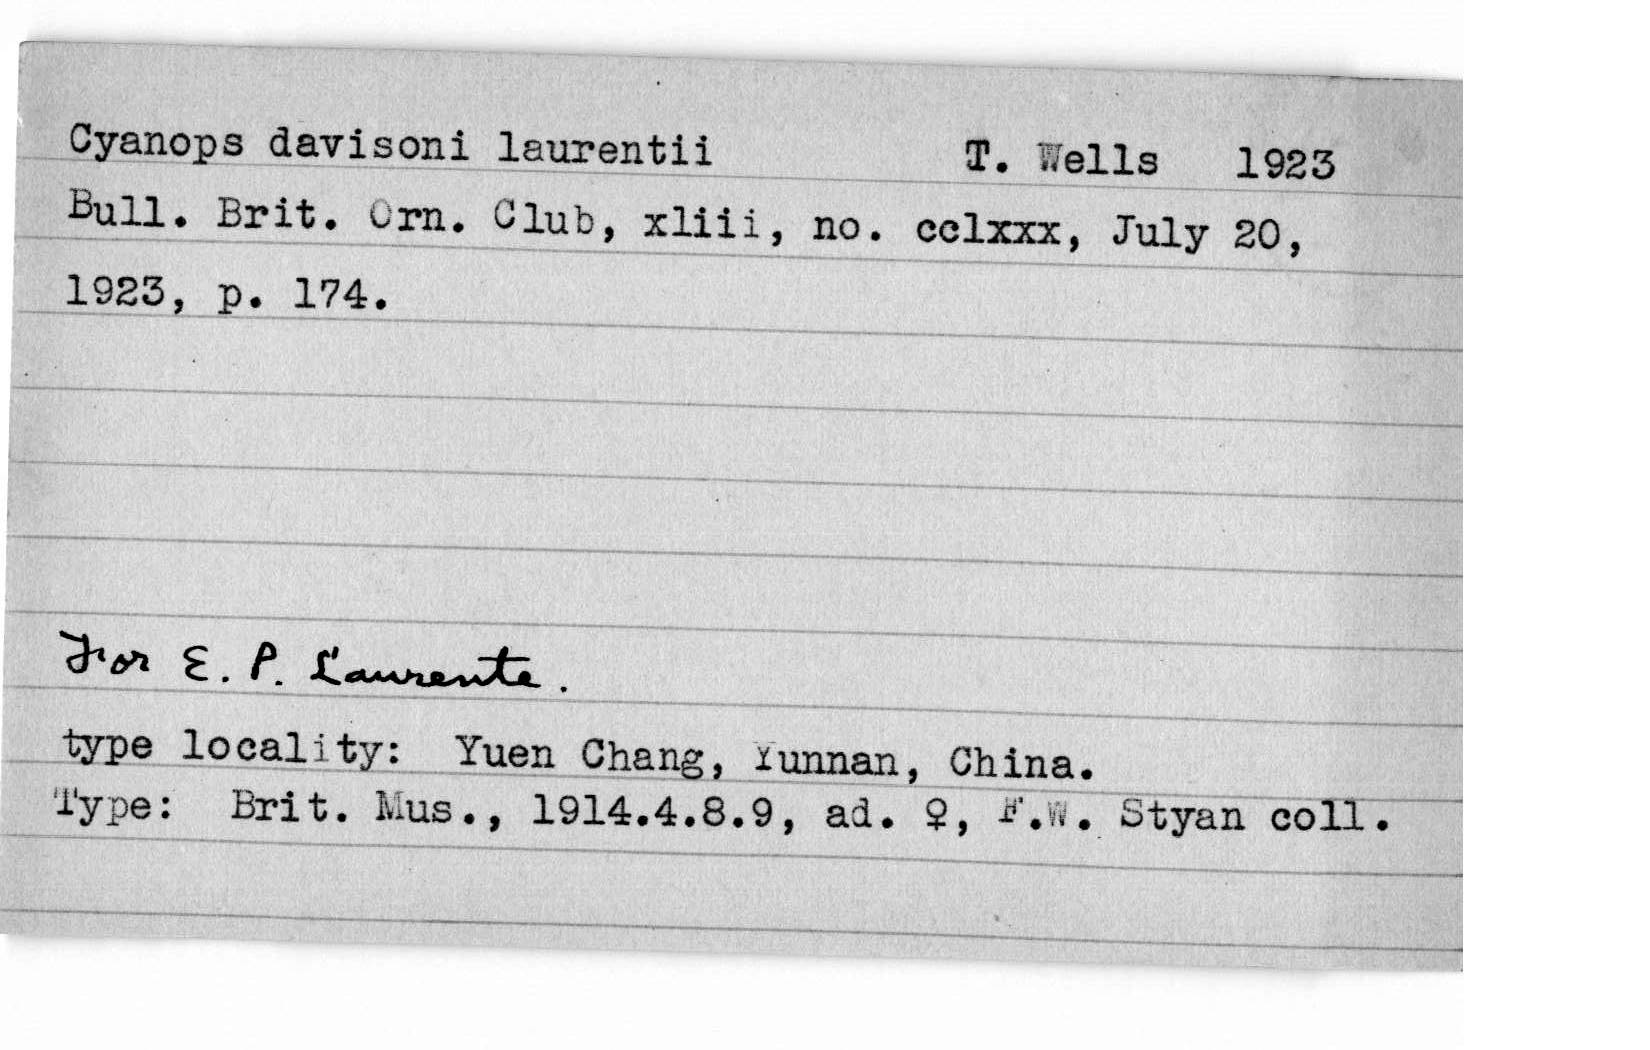 Cyanops davisoni laurentii T. Wells 1923
Bull. Brit. Orn. Club, xliii, no. cclxxx, July 20,
1923, p. 174.
For E. P. Laurente.
type locality: Yuen Chang, Yunnan, China.
Type: Brit. Mus., 1914.4.8.9, ad. ♀, F.W. Styan coll.